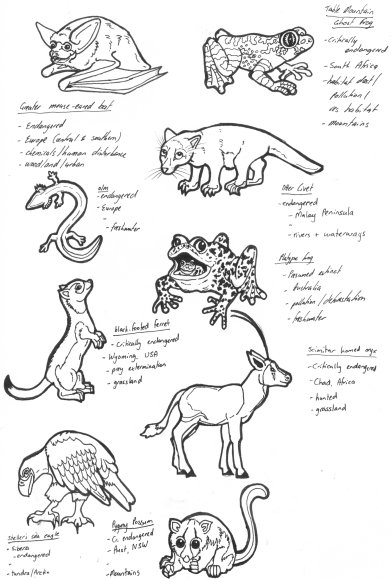 Table Mountain
Ghost Frog
- Critically
endangered
- South Africa
- habitat dest/
pollution/
habitat
- mountains
Greater mouse-eared bat
- Endangered
- Europe (central & southern)
- chemicals/human disturbance
- woodland/urban
olm
- endangered
- Europe
"
- freshwater
Otter Civet
- endangered
- Malay Peninsula
"
- rivers + waterways
Platypus frog
- Presumed extinct
- Australia
- pollution/deforestation
- freshwater
black-footed ferret
- Critically endangered
- Wyoming, USA
- prey extermination
- grassland
Scimitar horned oryx
- Critically endangered
- Chad, Africa
- hunted
- grassland
Steller's sea eagle
- Siberia
- endangered
"
- tundra/Arctic
Pygmy Possum
- Cr. endangered
- Aust, NSW
"
- Mountains